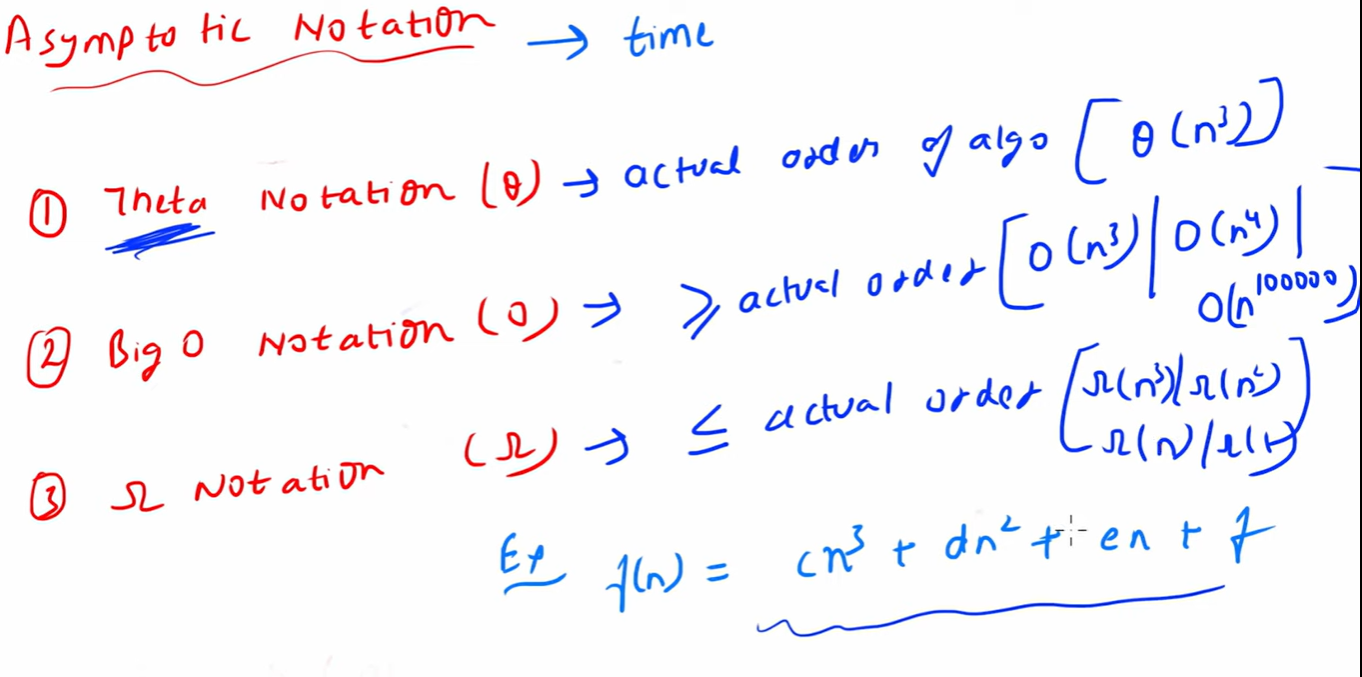 Asymptotic Notation → time
① Theta Notation (θ) → actual order of algo [θ(n³)]
② Big O Notation (O) → ≥ actual order [O(n³) | O(n⁴) |
O(n¹⁰⁰⁰⁰⁰)
③ Ω Notation (Ω) → ≤ actual order [Ω(n³) | Ω(n²)
Ω(n) / Ω(1)]
Ex f(n) = cn³ + dn² + en + f